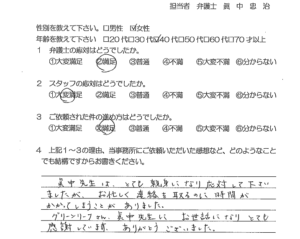 担当者 弁護士 眞中 忠治
性別を教えて下さい。 □男性 ☑女性
年齢を教えて下さい □20代□30代☑40代□50代□60代□70才以上
1 弁護士の応対はどうでしたか。
①大変満足 ②満足 ③普通 ④不満 ⑤大変不満 ⑥分からない
2 スタッフの応対はどうでしたか。
①大変満足 ②満足 ③普通 ④不満 ⑤大変不満 ⑥分からない
3 ご依頼された件の進め方はどうでしたか。
①大変満足 ②満足 ③普通 ④不満 ⑤大変不満 ⑥分からない
4 上記1~3の理由、当事務所にご依頼いただいた感想など、どのようなこと
でも結構ですからお書きください。
眞中先生は、とても親身になり応対して下さい
ましたが、お忙しく連絡を取るのに時間が
かかってしまうことが ありました。
グリーンリーフさん、眞中先生に お世話になり とても
感謝しています。ありがとうございました。